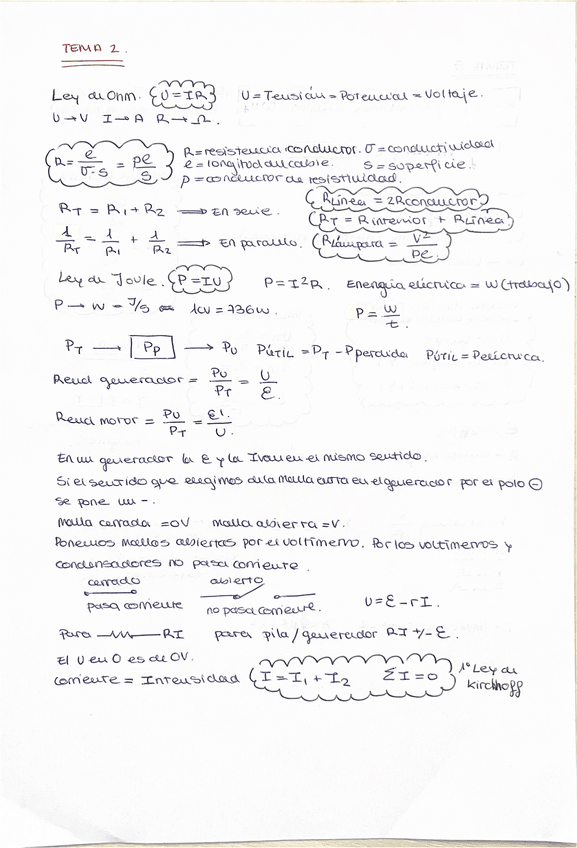 TEMA 2.
Ley de Ohm. U = IR U = Tensión = Potencial = Voltaje.
U → V I → A R → Ω.
R = e/σ·s = ρe/s R = resistencia conductor. σ = conductividad
e = longitud del cable. s = superficie.
ρ = conductor de resistividad.
RT = R1 + R2 ⟹ En serie. RLínea = 2Rconductor
RT = Rinterior + RLínea
1/RT = 1/R1 + 1/R2 ⟹ En paralelo. RLámpara = V²/Pe
Ley de Joule. P = IU P = I²R. Energía eléctrica = W (trabajo)
P → W = J/s 1CV = 736W. P = W/t.
PT → Pp → PU PÚTIL = PT - Pperdida PÚTIL = Peléctrica.
Rend generador = PU/PT = U/ε.
Rend motor = PU/PT = ε'/U.
En un generador la ε y la I van en el mismo sentido.
Si el sentido que elegimos de la malla entra en el generador por el polo ⊖
se pone un -.
Malla cerrada = 0V Malla abierta = V.
Ponemos mallas abiertas por el voltímetro. Por los voltímetros y
condensadores no pasa corriente.
cerrado abierto
pasa corriente no pasa corriente. U = ε - rI.
Para RI para pila/generador RI +/- ε.
El U en 0 es de 0V.
Corriente = Intensidad I = I1 + I2 ΣI = 0 1º Ley de
Kirchhoff